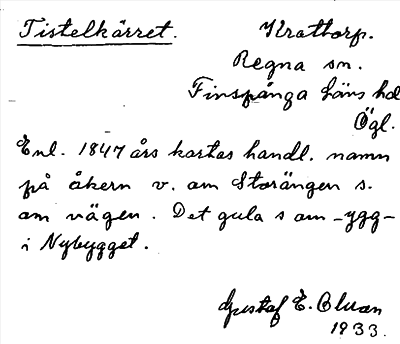 Tistelkärret. Krattorp.
Regna sn.
Finspånga läns hd
Ögl.
Enl. 1847 års kartas handl. namn
på åkern v. om Storängen s.
om vägen. Det gula s om -ygg-
i Nybygget.
Gustaf E. Olson
1933.